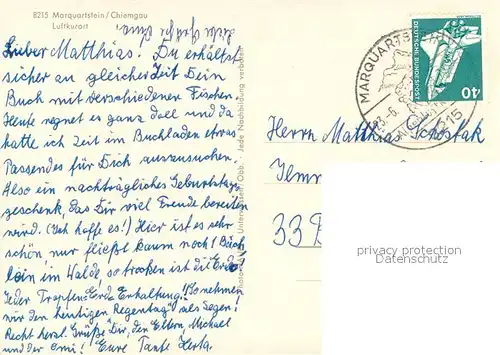 8215 Marquartstein/Chiemgau
Luftkurort
Lieber Matthias! Du erhältst
sicher zu gleicher Zeit Dein
Buch mit verschiedenen Fischen.
Heute regnet es ganz doll und da
hatte ich Zeit im Buchladen etwas
Passendes für Dich auszusuchen.
Also ein nachträgliches Geburtstags
geschenk, das Dir viel Freude bereiten
wird. (Ich hoffe es!) Hier ist es sehr
schön, nur fließt kaum noch 1 Bäch
lein im Walde so trocken ist die Erde!
Jeder Tropfen Erde Erhaltung! "So nehmen
wir den heutigen Regentag" als Segen!
Recht herzl. Grüße Dir, den Eltern, Michael
und der Omi! Eure Tante Herta.
Jede Nachbildung verboten
MARQUARTSTEIN
23.-6.
8215
DEUTSCHE BUNDESPOST
40
Herrn Matthias
Ilmr
33
privacy protection
Datenschutz